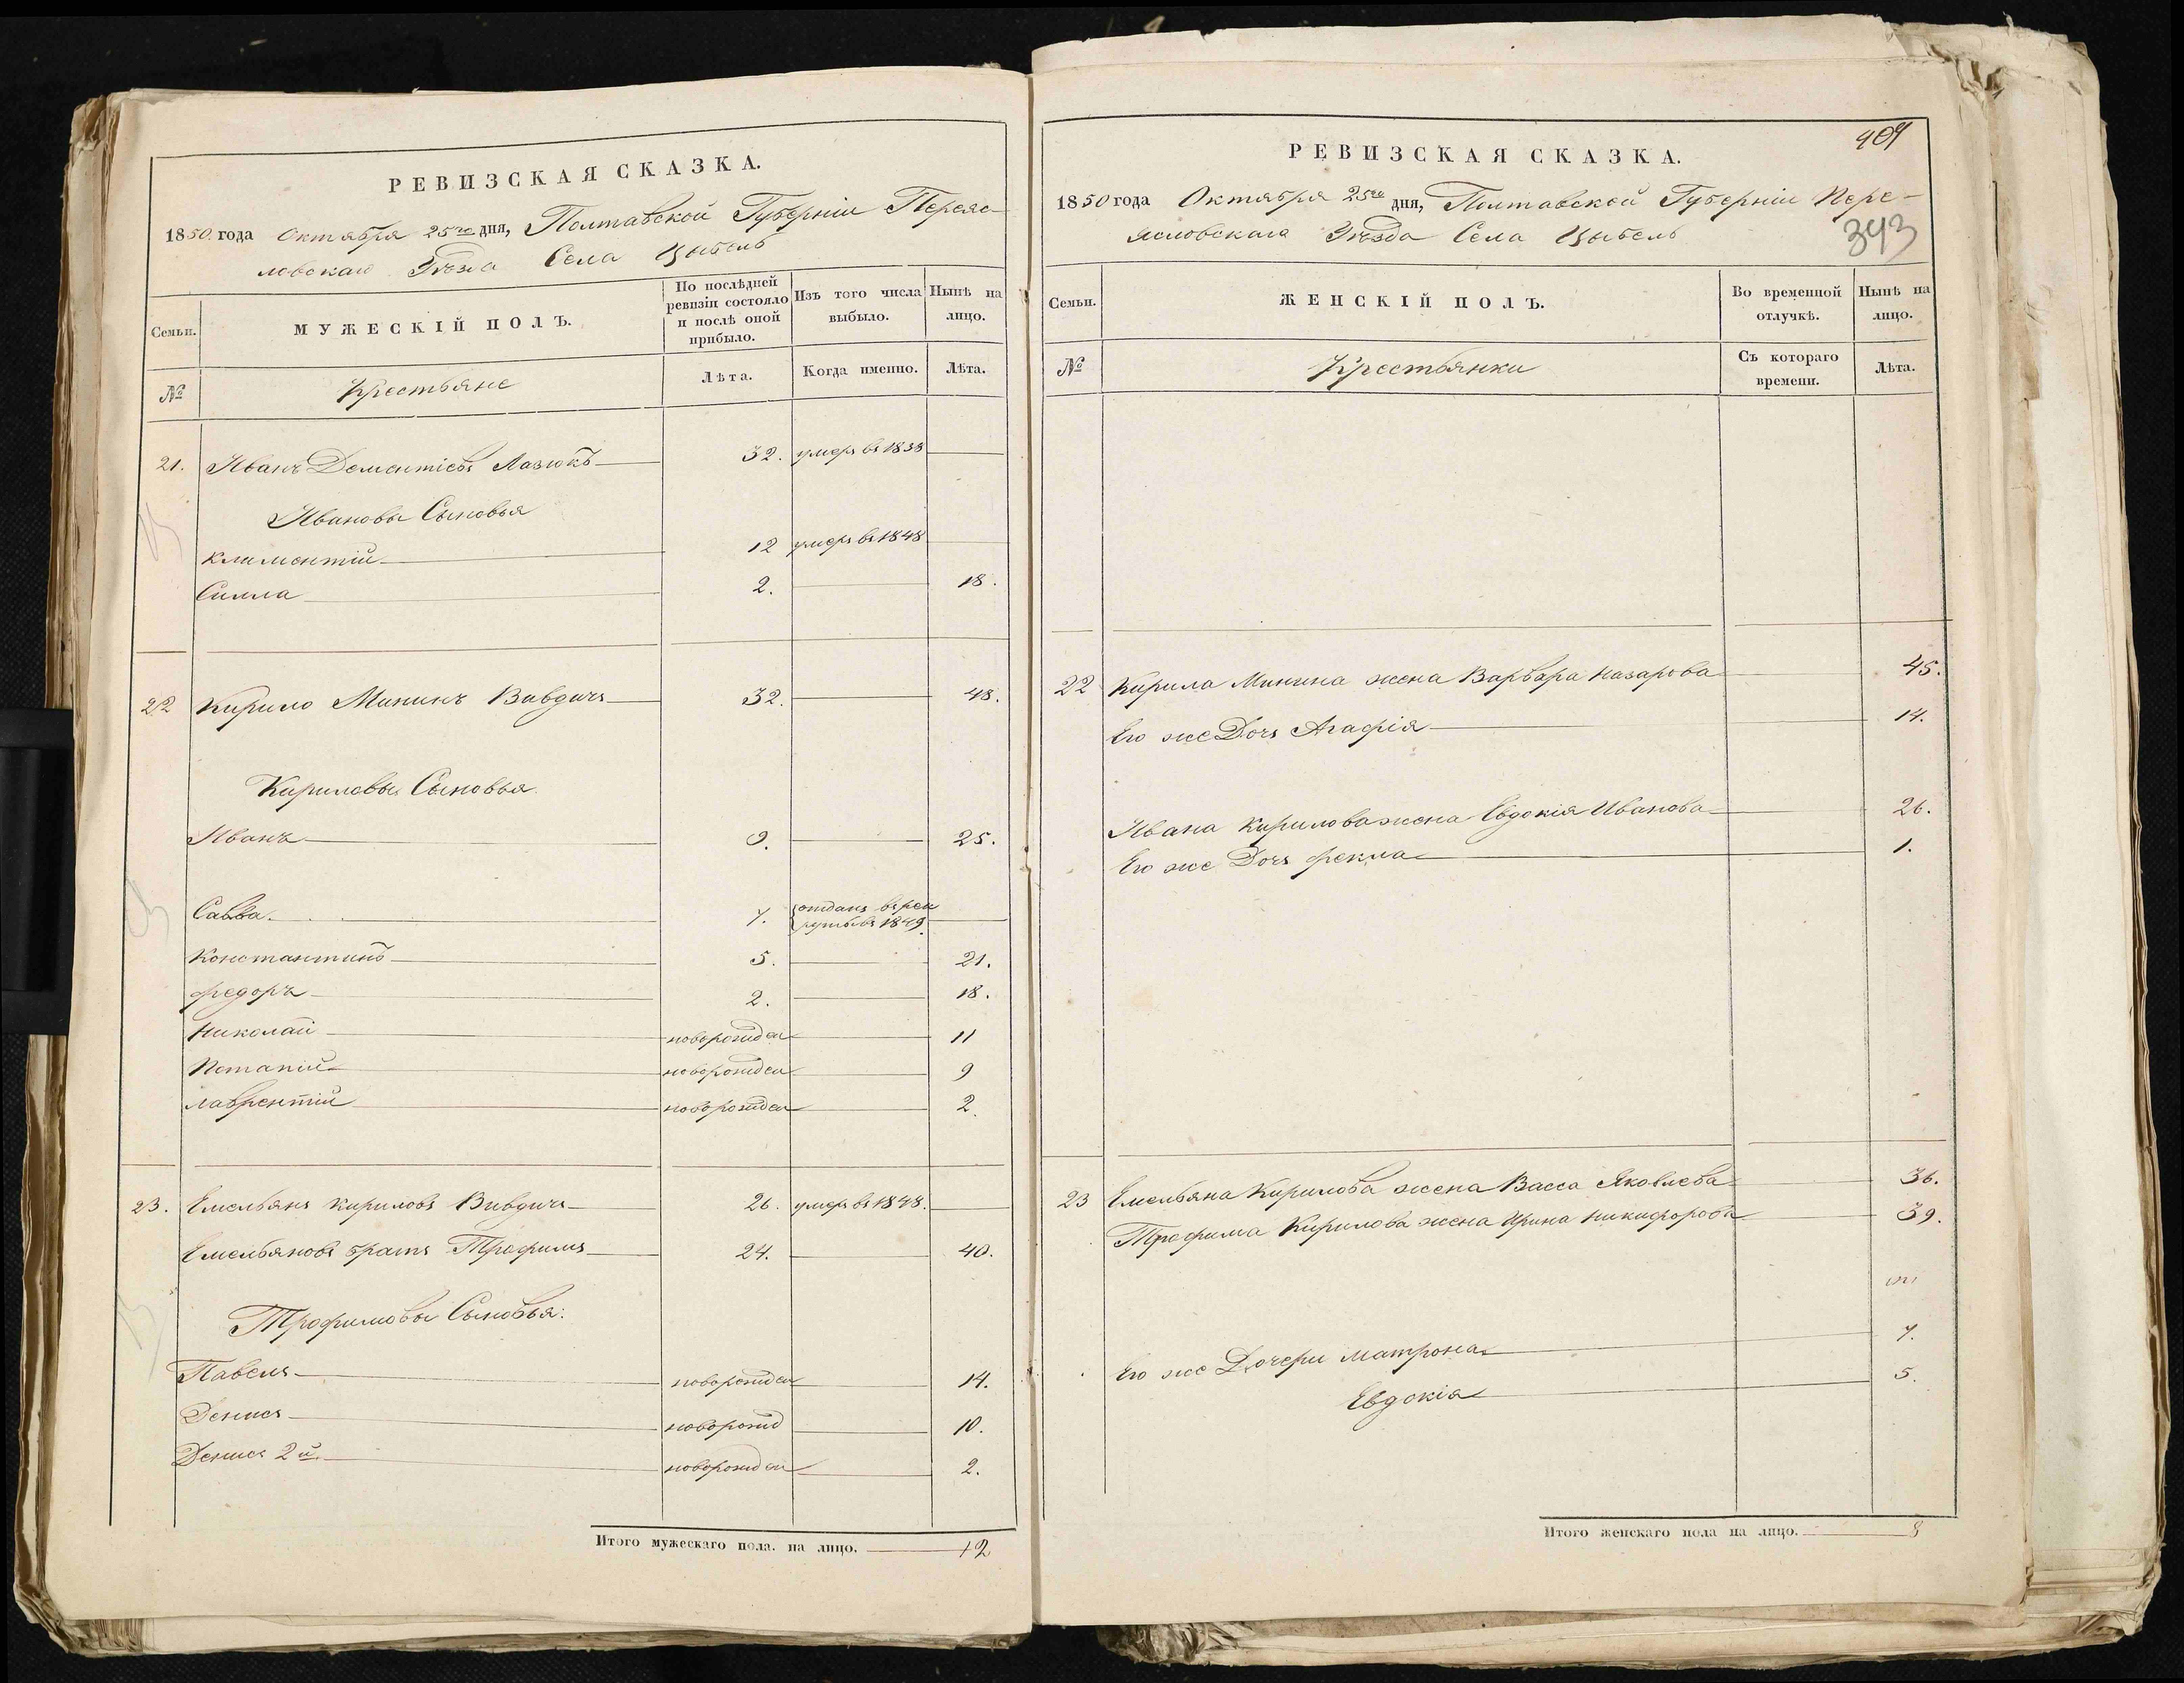 РЕВИЗСКАЯ СКАЗКА.
1850 года Октября 25го дня, Полтавской Губерніи Переяс-
ловскаго Уѣзда Села Цыбель
Семьи.
МУЖЕСКІЙ ПОЛЪ.
По послѣдней ревизіи состояло и послѣ оной прибыло.
Изъ того числа выбыло.
Нынѣ на лицо.
№
Крестьяне
Лѣта.
Когда именно.
Лѣта.
21. Иванъ Дементіевъ Лазюкъ 32. умеръ въ 1838
Ивановы Сыновья
Климентій 12 умеръ въ 1848
Силла 2. 18.
22 Кирило Мининъ Вивдичъ 32. 48.
Кириловы Сыновья
Иванъ 9. 25.
Савва. 7. отданъ въ рек
руты въ 1849.
Константинъ 5. 21.
Федоръ 2. 18.
Николай новорожден 11
Потапій новорожден 9
Лаврентій новорожден 2.
23. Емельянъ Кириловъ Вивдичъ 26. умеръ въ 1848.
Емельяновъ братъ Трофимъ 24. 40.
Трофимовы Сыновья:
Павелъ новорожден 14.
Денисъ новорожд 10.
Денисъ 2й. новорожден 2.
Итого мужескаго пола. на лицо. 12
409
РЕВИЗСКАЯ СКАЗКА.
1850 года Октября 25го дня, Полтавской Губерніи Пере-
ясловскаго Уѣзда Села Цыбель
393
Семьи.
ЖЕНСКІЙ ПОЛЪ.
Во временной отлучкѣ.
Нынѣ на лицо.
№
Крестьянки
Съ котораго времени.
Лѣта.
22 Кирила Минина жена Варвара Назарова 45.
Его же Дочь Агафія 14.
Ивана Кирилова жена Евдокія Иванова 26.
Его же Дочь Фекла 1.
23 Емельяна Кирилова жена Васса Яковлева 36.
Трофима Кирилова жена Ирина Никифорова 39.
Его же Дочери Матрона 7.
Евдокія 5.
Итого женскаго пола на лицо. 8